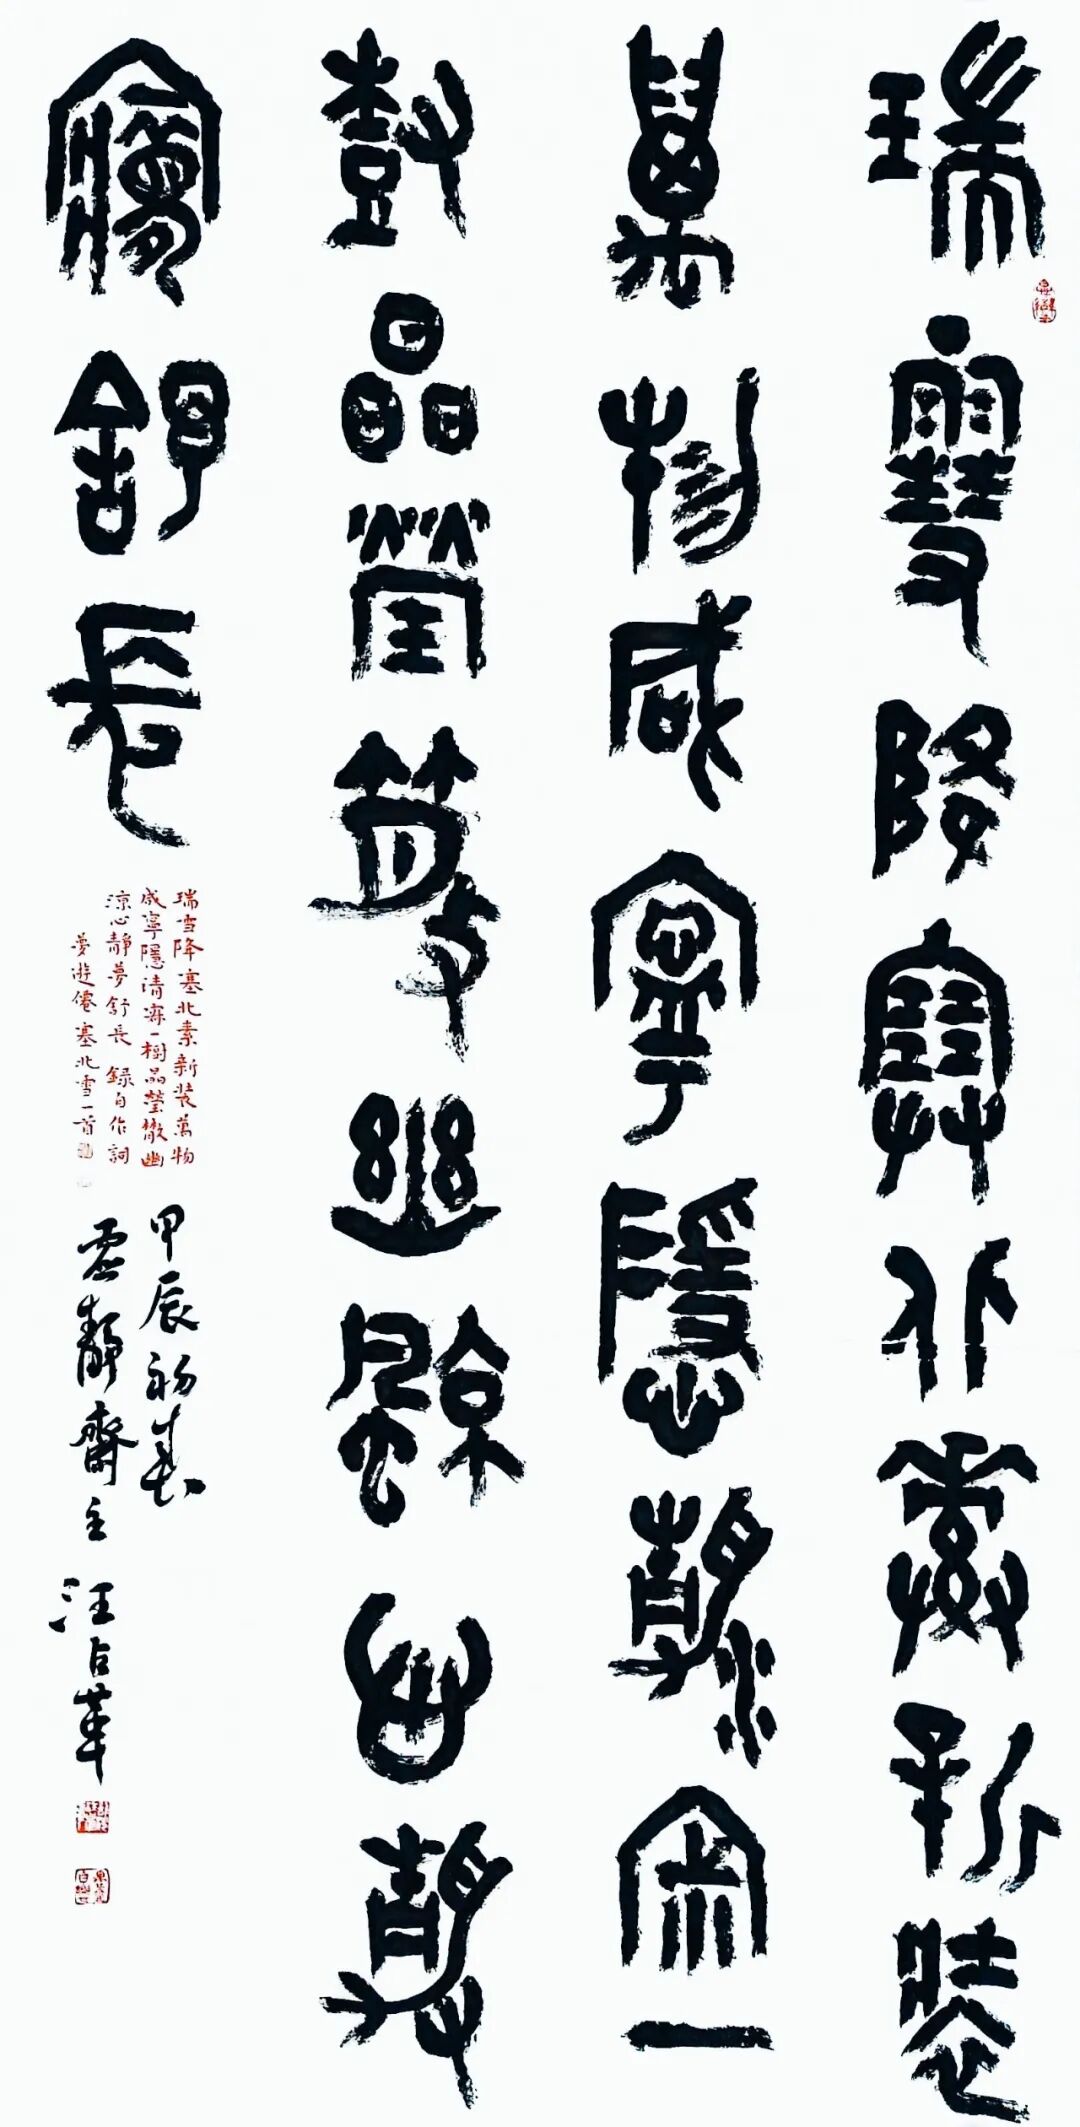 瑞雪降塞北素新裝
萬物咸寧隱清寂一
樹晶瑩幽涼心靜
夢舒長
瑞雪降塞北素新裝萬物
咸寧隱清寂一樹晶瑩散幽
涼心靜夢舒長 錄自作詞
夢遊僊塞北雪一首
甲辰初春
虛靜齋主 汪占革